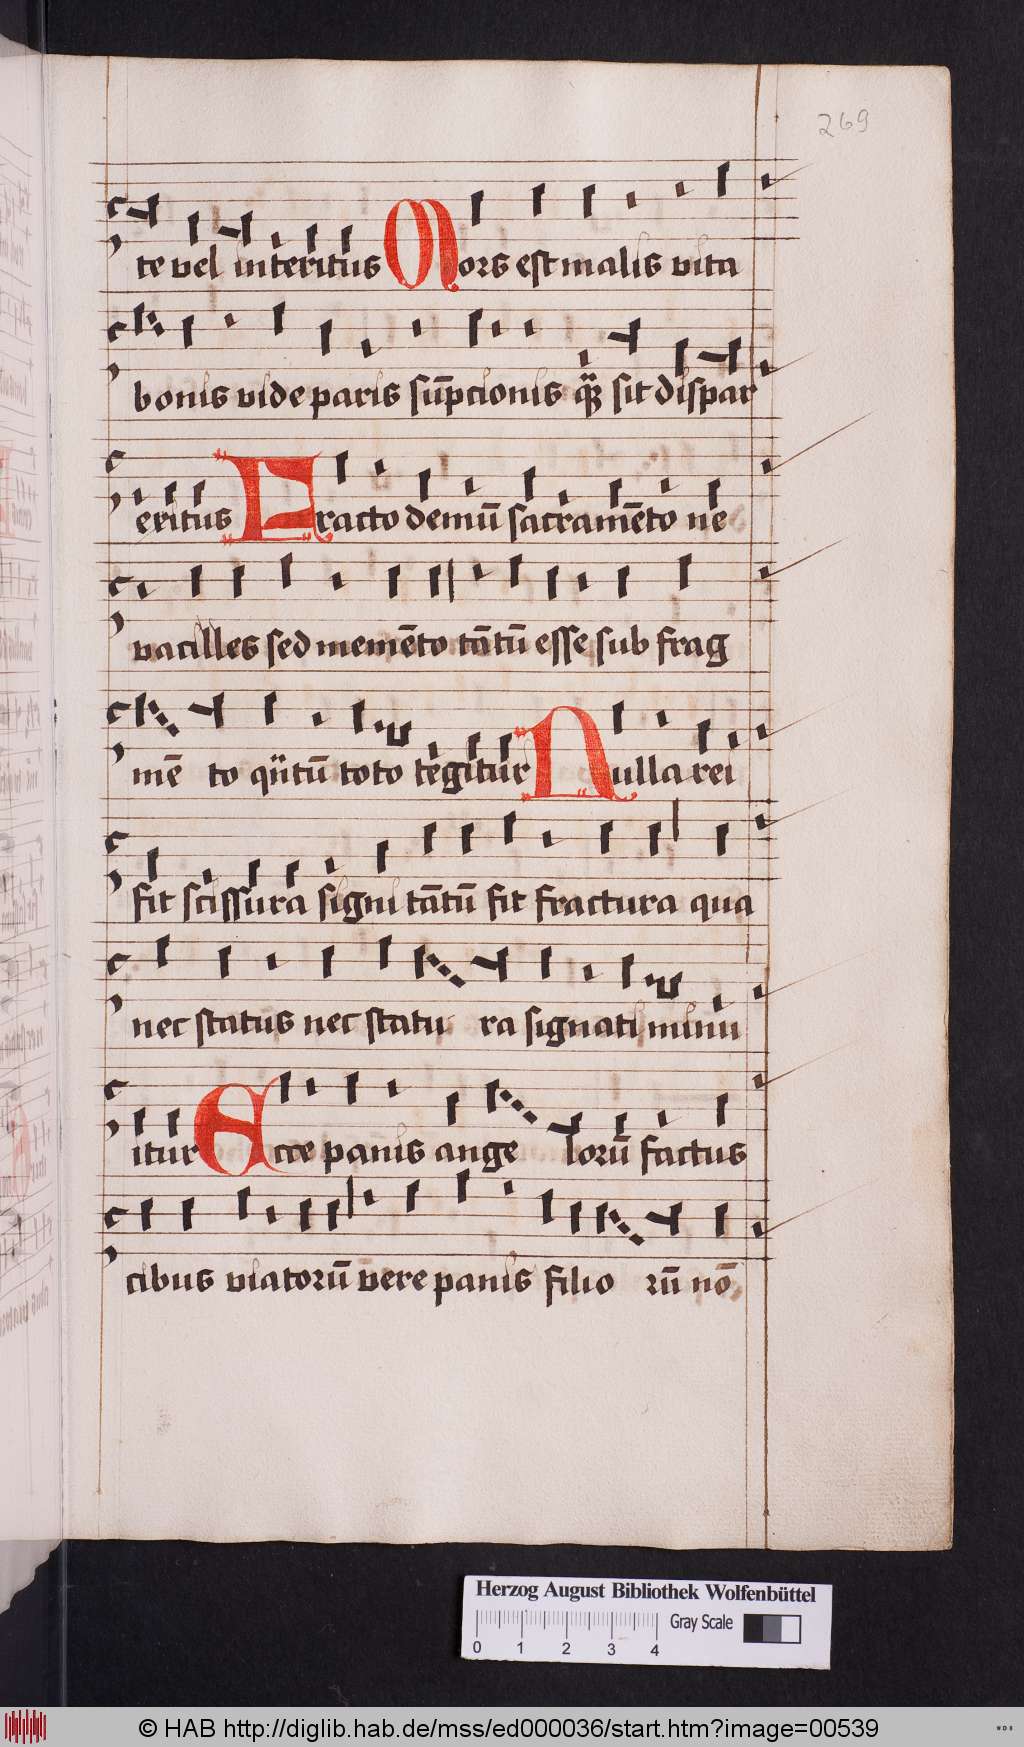 269
te vel interitus Mors est malis vita
bonis vide paris sūpcionis qͣ sit dispar
eritus Fracto demū sacramēto ne
vacilles sed memēto tātū esse sub frag
mē to qͣtū toto tegitur Nulla rei
fit scissura signi tātū fit fractura qua
nec status nec statu ra signati minu
itur Ecce panis ange lorū factus
cibus viatorū vere panis filio rū nō
Herzog August Bibliothek Wolfenbüttel
Gray Scale
0 1 2 3 4
© HAB http://diglib.hab.de/mss/ed000036/start.htm?image=00539